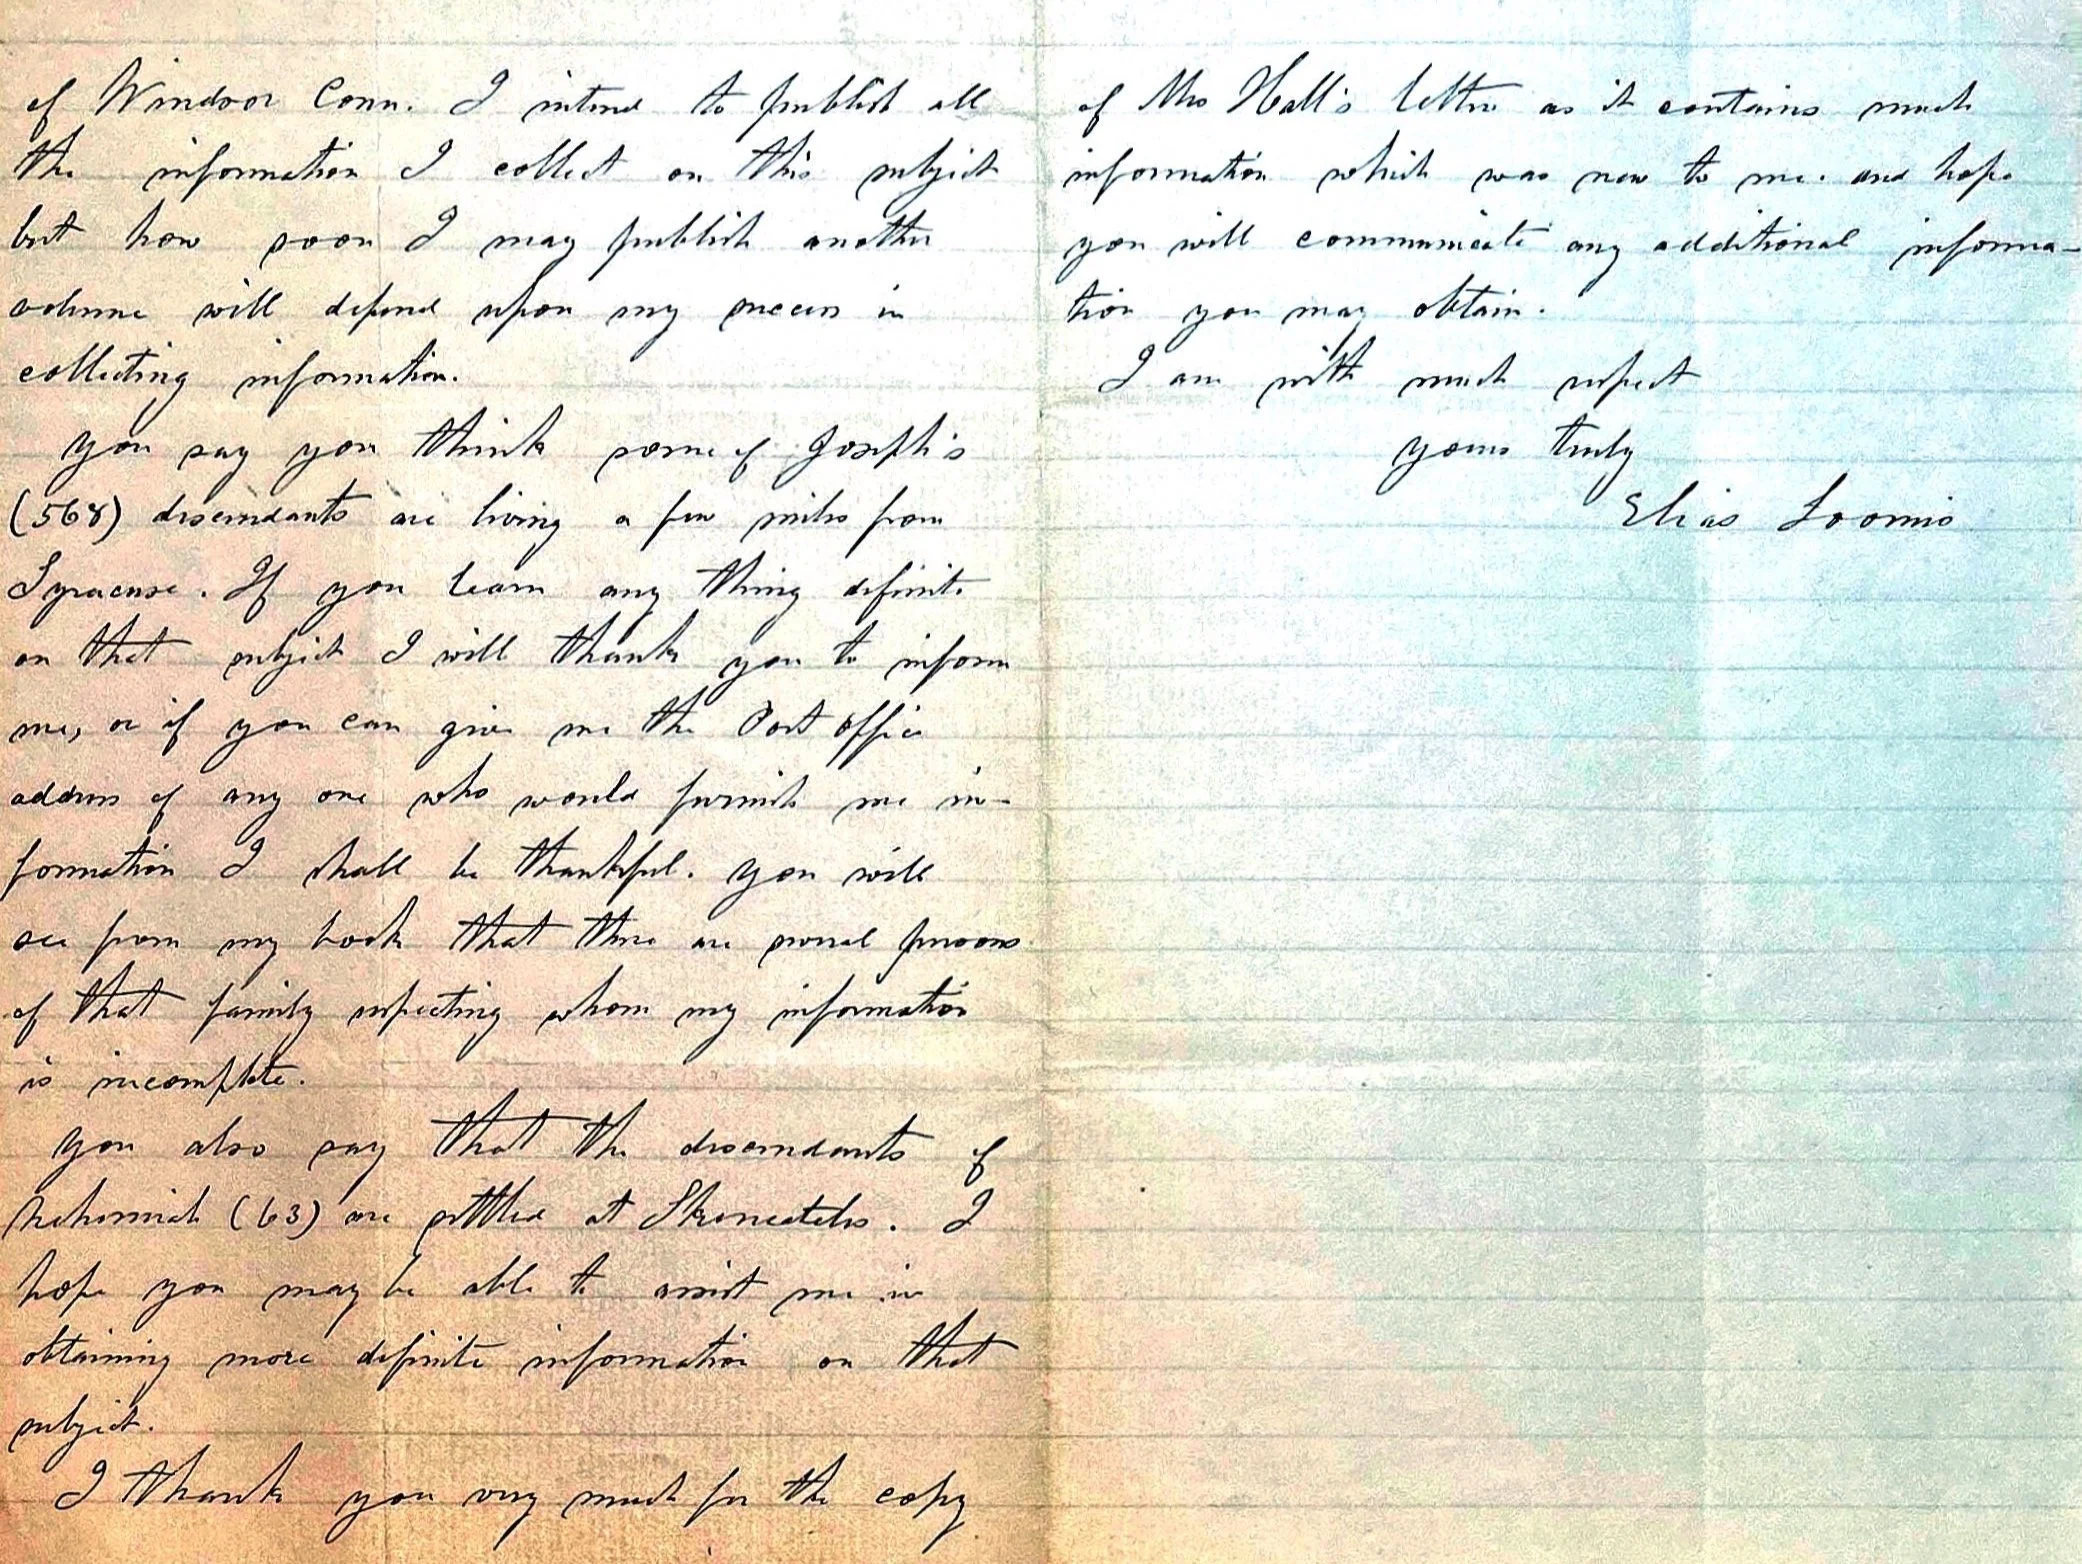 of Windsor Conn. I intend to publish all
the information I collect on this subject
but how soon I may publish another
volume will depend upon my success in
collecting information.
You say you think some of Joseph's
(568) descendants are living a few miles from
Syracuse. If you learn any thing definite
on that subject I will thank you to inform
me, or if you can give me the Post office
address of any one who would furnish me in-
formation I shall be thankful. You will
see from my book that there are several persons
of that family respecting whom my information
is incomplete.
You also say that the descendants of
Nehemiah (63) are settled at Skeneateles. I
hope you may be able to assist me in
obtaining more definite information on that
subject.
I thank you very much for the copy
of Mrs Hall's letter as it contains much
information which was new to me. and hope
you will communicate any additional informa-
tion you may obtain.
I am with much respect
yours truly
Elias Loomis